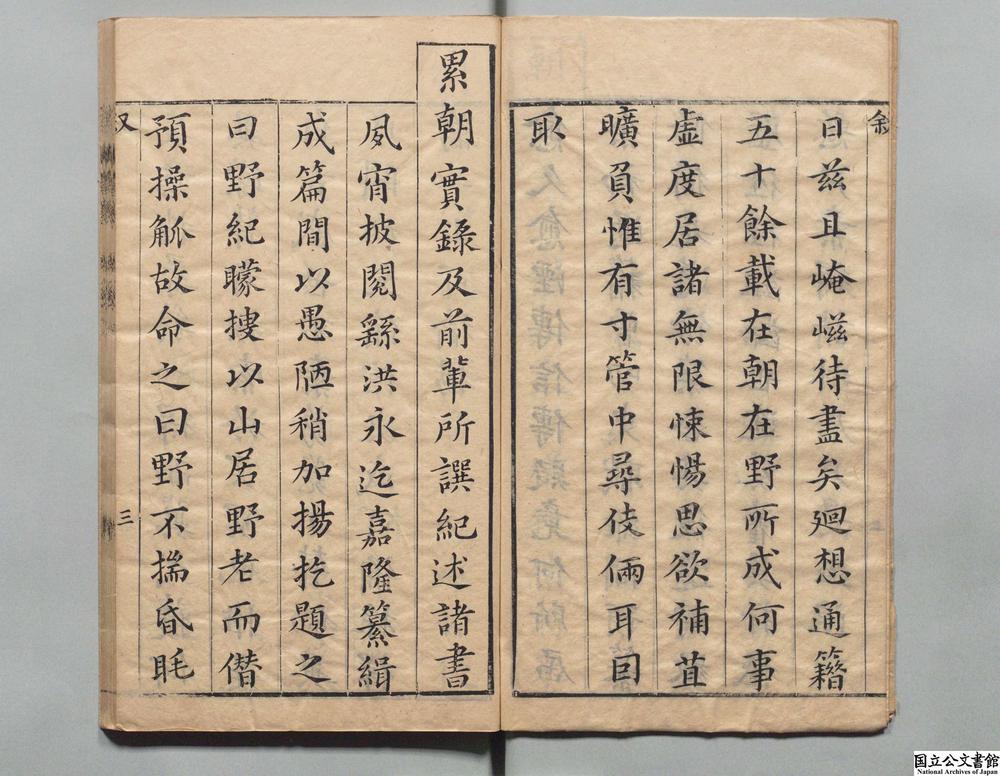 日兹且崦嵫待盡矣廻想通籍
五十餘載在朝在野所成何事
虛度居諸無限悚惕思欲補苴
曠負惟有寸管中尋伎倆耳囙
取
累朝實錄及前輩所譔紀述諸書
夙宵披閱繇洪永迄嘉隆纂緝
成篇間以愚陋稍加揚扢題之
曰野紀矇搜以山居野老而僭
預操觚故命之曰野不揣昏眊
三
国立公文書館
National Archives of Japan